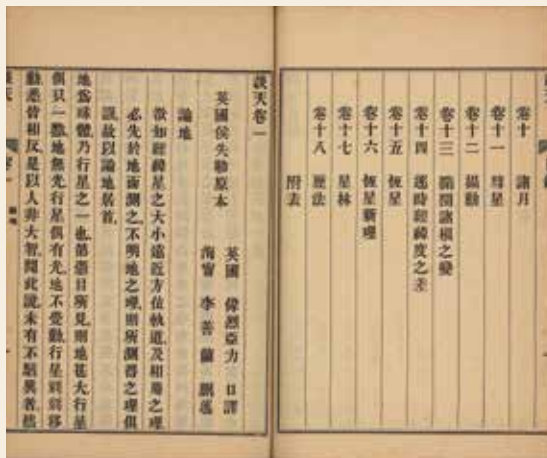 卷十　諸月
卷十一　彗星
卷十二　攝動
卷十三　橢圓諸根之變
卷十四　逐時經緯度之差
卷十五　恆星
卷十六　恆星新理
卷十七　星林
卷十八　歷法
附表
談天卷一
英國侯失勒原本
英國　偉烈亞力　口譯
海寧　李善蘭　刪述
論地
欲知經緯星之大小遠近方位軌道及相屬之理
必先於地面測之不明地之理則所測得之理俱
誤故以論地居首
地為球體乃行星之一也第憑目所見則地甚大行星
俱只一點地無光行星俱有光地不覺動行星刻刻移
動悉皆相反是以人非大智聞此說未有不駭異者然